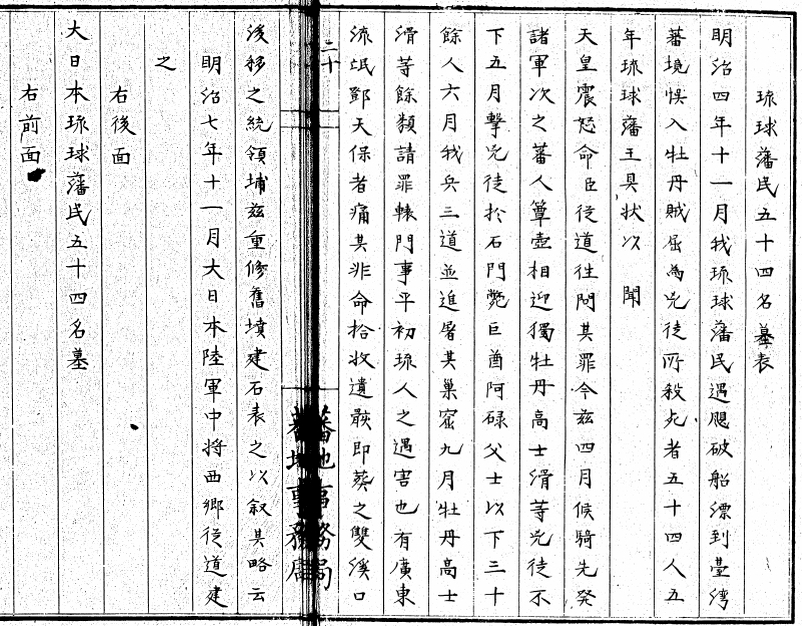 琉球藩民五十四名墓表
明治四年十一月我琉球藩民遇颶破船漂到臺灣
蕃境悞入牡丹賊屈為兇徒所殺死者五十四人五
年琉球藩王具狀以　聞
天皇震怒命臣従道往問其罪今茲四月候騎先発
諸軍次之蕃人簞壺相迎獨牡丹高士滑等兇徒不
下五月擊兇徒於石門斃巨酋阿碌父士以下三十
餘人六月我兵三道並進屠其巢窟九月牡丹高士
滑等餘類請罪轅門事平初琉人之遇害也有廣東
流氓鄧天保者痛其非命拾收遺骸即葬之雙溪口
二十
蕃地事務局
蕃地事務局
後移之統領埔茲重修舊墳建石表之以叙其略云
明治七年十一月大日本陸軍中将西郷従道建
之
右後面
大日本琉球藩民五十四名墓
右前面